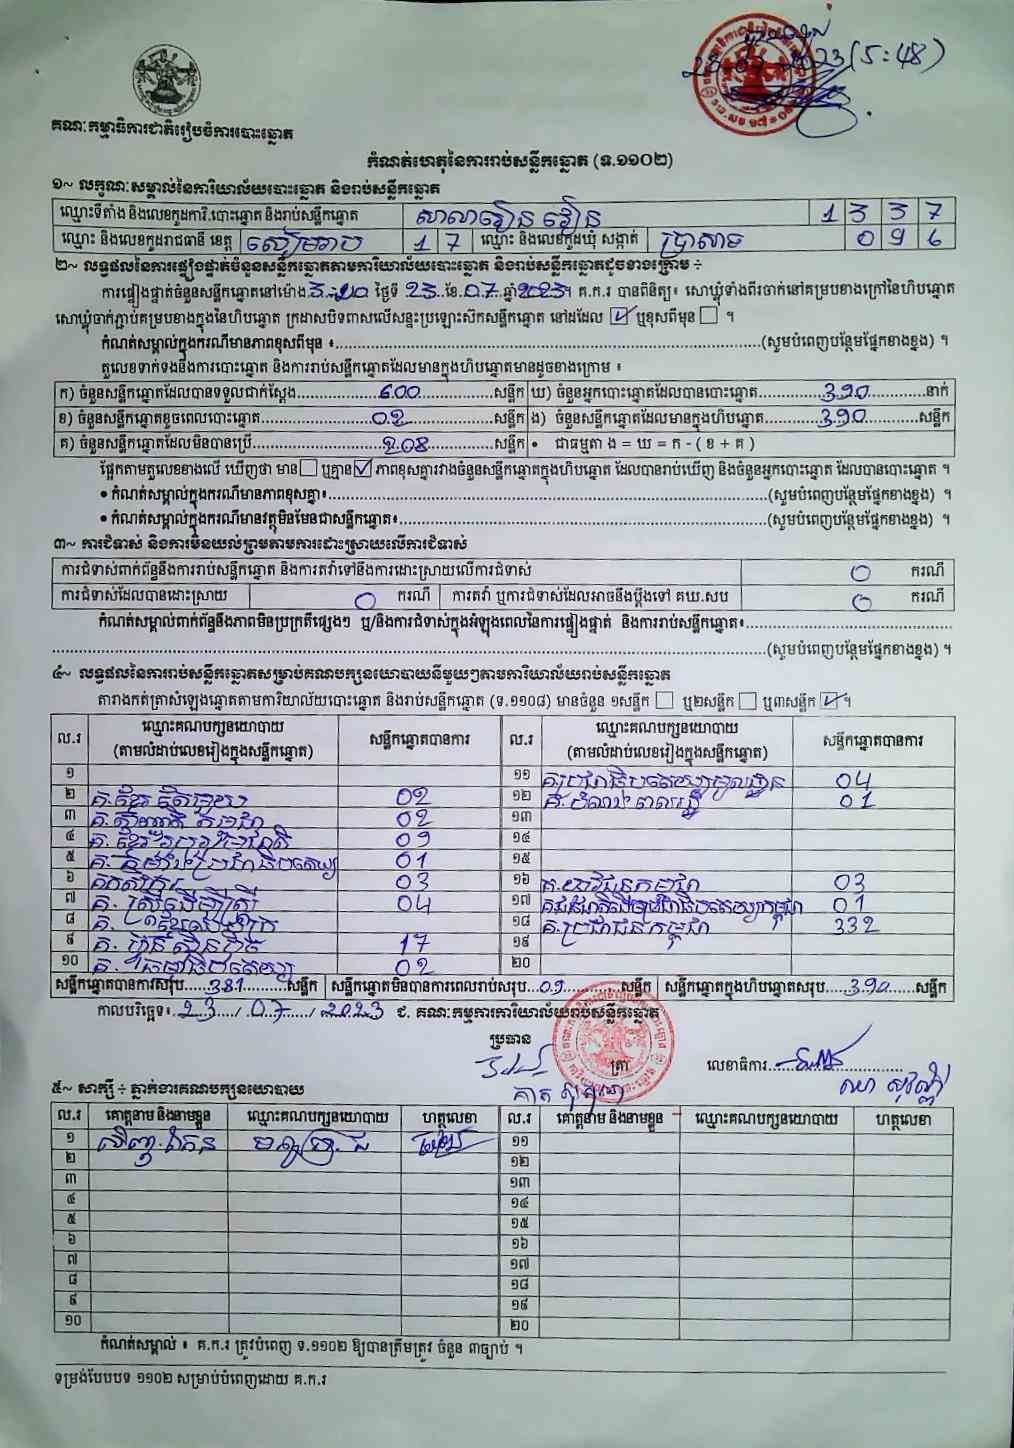 23 (5:48)
គណៈកម្មាធិការជាតិរៀបចំការបោះឆ្នោត
កំណត់ហេតុនៃការរាប់សន្លឹកឆ្នោត (ទ.១១០២)
១~ លក្ខណៈសម្គាល់នៃការិយាល័យបោះឆ្នោត និងរាប់សន្លឹកឆ្នោត
ឈ្មោះទីតាំង និងលេខកូដការិ.បោះឆ្នោត និងរាប់សន្លឹកឆ្នោត សាលារៀន រៀន 1 3 3 7
ឈ្មោះ និងលេខកូដរាជធានី ខេត្ត សៀមរាប 1 7 ឈ្មោះ និងលេខកូដឃុំ សង្កាត់ ប្រាសាទ 0 9 6
២~ លទ្ធផលនៃការផ្ទៀងផ្ទាត់ចំនួនសន្លឹកឆ្នោតតាមការិយាល័យបោះឆ្នោត និងរាប់សន្លឹកឆ្នោតដូចខាងក្រោម ÷
ការផ្ទៀងផ្ទាត់ចំនួនសន្លឹកឆ្នោតនៅម៉ោង 3:20 ថ្ងៃទី 23 ខែ 07 ឆ្នាំ 2023។ គ.ក.រ បានពិនិត្យ៖ សោឃ្លុំទាំងពីរចាក់នៅគម្របខាងក្រៅនៃហិបឆ្នោត
សោឃ្លុំចាក់ភ្ជាប់គម្របខាងក្នុងនៃហិបឆ្នោត ក្រដាសបិទពាសលើសន្ទះប្រឡោះស៊កសន្លឹកឆ្នោត នៅដដែល ☑ ឬខុសពីមុន ☐ ។
កំណត់សម្គាល់ក្នុងករណីមានភាពខុសពីមុន ៖ (សូមបំពេញបន្ថែមផ្នែកខាងខ្នង) ។
តួលេខទាក់ទងនឹងការបោះឆ្នោត និងការរាប់សន្លឹកឆ្នោតដែលមានក្នុងហិបឆ្នោតមានដូចខាងក្រោម ៖
ក) ចំនួនសន្លឹកឆ្នោតដែលបានទទួលជាក់ស្តែង 600 សន្លឹក ឃ) ចំនួនអ្នកបោះឆ្នោតដែលបានបោះឆ្នោត 390 នាក់
ខ) ចំនួនសន្លឹកឆ្នោតខូចពេលបោះឆ្នោត 02 សន្លឹក ង) ចំនួនសន្លឹកឆ្នោតដែលមានក្នុងហិបឆ្នោត 390 សន្លឹក
គ) ចំនួនសន្លឹកឆ្នោតដែលមិនបានប្រើ 208 សន្លឹក • ជាធម្មតា ង = ឃ = ក - ( ខ + គ )
ផ្អែកតាមតួលេខខាងលើ ឃើញថា មាន ☐ ឬគ្មាន ☑ ភាពខុសគ្នារវាងចំនួនសន្លឹកឆ្នោតក្នុងហិបឆ្នោត ដែលបានរាប់ឃើញ និងចំនួនអ្នកបោះឆ្នោត ដែលបានបោះឆ្នោត ។
• កំណត់សម្គាល់ក្នុងករណីមានភាពខុសគ្នា៖ (សូមបំពេញបន្ថែមផ្នែកខាងខ្នង) ។
• កំណត់សម្គាល់ក្នុងករណីមានវត្ថុមិនមែនជាសន្លឹកឆ្នោត៖ (សូមបំពេញបន្ថែមផ្នែកខាងខ្នង) ។
៣~ ការជំទាស់ និងការមិនយល់ព្រមតាមការដោះស្រាយលើការជំទាស់
ការជំទាស់ពាក់ព័ន្ធនឹងការរាប់សន្លឹកឆ្នោត និងការតវ៉ាទៅនឹងការដោះស្រាយលើការជំទាស់ 0 ករណី
ការជំទាស់ដែលបានដោះស្រាយ 0 ករណី ការតវ៉ា ឬការជំទាស់ដែលអាចនឹងប្តឹងទៅ គឃ.សប 0 ករណី
កំណត់សម្គាល់ពាក់ព័ន្ធនឹងភាពមិនប្រក្រតីផ្សេងៗ ឬ/និងការជំទាស់ក្នុងអំឡុងពេលនៃការផ្ទៀងផ្ទាត់ និងការរាប់សន្លឹកឆ្នោត៖
(សូមបំពេញបន្ថែមផ្នែកខាងខ្នង) ។
៤~ លទ្ធផលនៃការរាប់សន្លឹកឆ្នោតសម្រាប់គណបក្សនយោបាយនីមួយៗតាមការិយាល័យរាប់សន្លឹកឆ្នោត
តារាងកត់ត្រាសំឡេងឆ្នោតតាមការិយាល័យបោះឆ្នោត និងរាប់សន្លឹកឆ្នោត (ទ.១១០៨) មានចំនួន ១សន្លឹក ☐ ឬ២សន្លឹក ☐ ឬ៣សន្លឹក ☑ ។
ល.រ ឈ្មោះគណបក្សនយោបាយ (តាមលំដាប់លេខរៀងក្នុងសន្លឹកឆ្នោត) សន្លឹកឆ្នោតបានការ ល.រ ឈ្មោះគណបក្សនយោបាយ (តាមលំដាប់លេខរៀងក្នុងសន្លឹកឆ្នោត) សន្លឹកឆ្នោតបានការ
១ ១១ គ.ប្រជាធិបតេយ្យមូលដ្ឋាន 04
២ គ.ខ្មែរតែមួយ 02 ១២ 01
៣ 02 ១៣
៤ 09 ១៤
៥ 01 ១៥
៦ គ.កសិករ 03 ១៦ គ.យុវជនកម្ពុជា 03
៧ គ.ស្រ្តីដើម្បីស្រ្តី 04 ១៧ 01
៨ ១៨ គ.ប្រជាជនកម្ពុជា 332
៩ គ.ហ៊្វុនស៊ិនប៉ិច 17 ១៩
១០ 02 ២០
សន្លឹកឆ្នោតបានការសរុប 381 សន្លឹក សន្លឹកឆ្នោតមិនបានការពេលរាប់សរុប 09 សន្លឹក សន្លឹកឆ្នោតក្នុងហិបឆ្នោតសរុប 390 សន្លឹក
កាលបរិច្ឆេទ៖ 23 / 07 / 2023 ជ. គណៈកម្មការការិយាល័យរាប់សន្លឹកឆ្នោត
ប្រធាន
ត្រា លេខាធិការ
៥~ សាក្សី ÷ ភ្នាក់ងារគណបក្សនយោបាយ
ល.រ គោត្តនាម និងនាមខ្លួន ឈ្មោះគណបក្សនយោបាយ ហត្ថលេខា ល.រ គោត្តនាម និងនាមខ្លួន ឈ្មោះគណបក្សនយោបាយ ហត្ថលេខា
១ ១១
២ ១២
៣ ១៣
៤ ១៤
៥ ១៥
៦ ១៦
៧ ១៧
៨ ១៨
៩ ១៩
១០ ២០
កំណត់សម្គាល់ ៖ គ.ក.រ ត្រូវបំពេញ ទ.១១០២ ឱ្យបានត្រឹមត្រូវ ចំនួន ៣ច្បាប់ ។
ទម្រង់បែបបទ ១១០២ សម្រាប់បំពេញដោយ គ.ក.រ